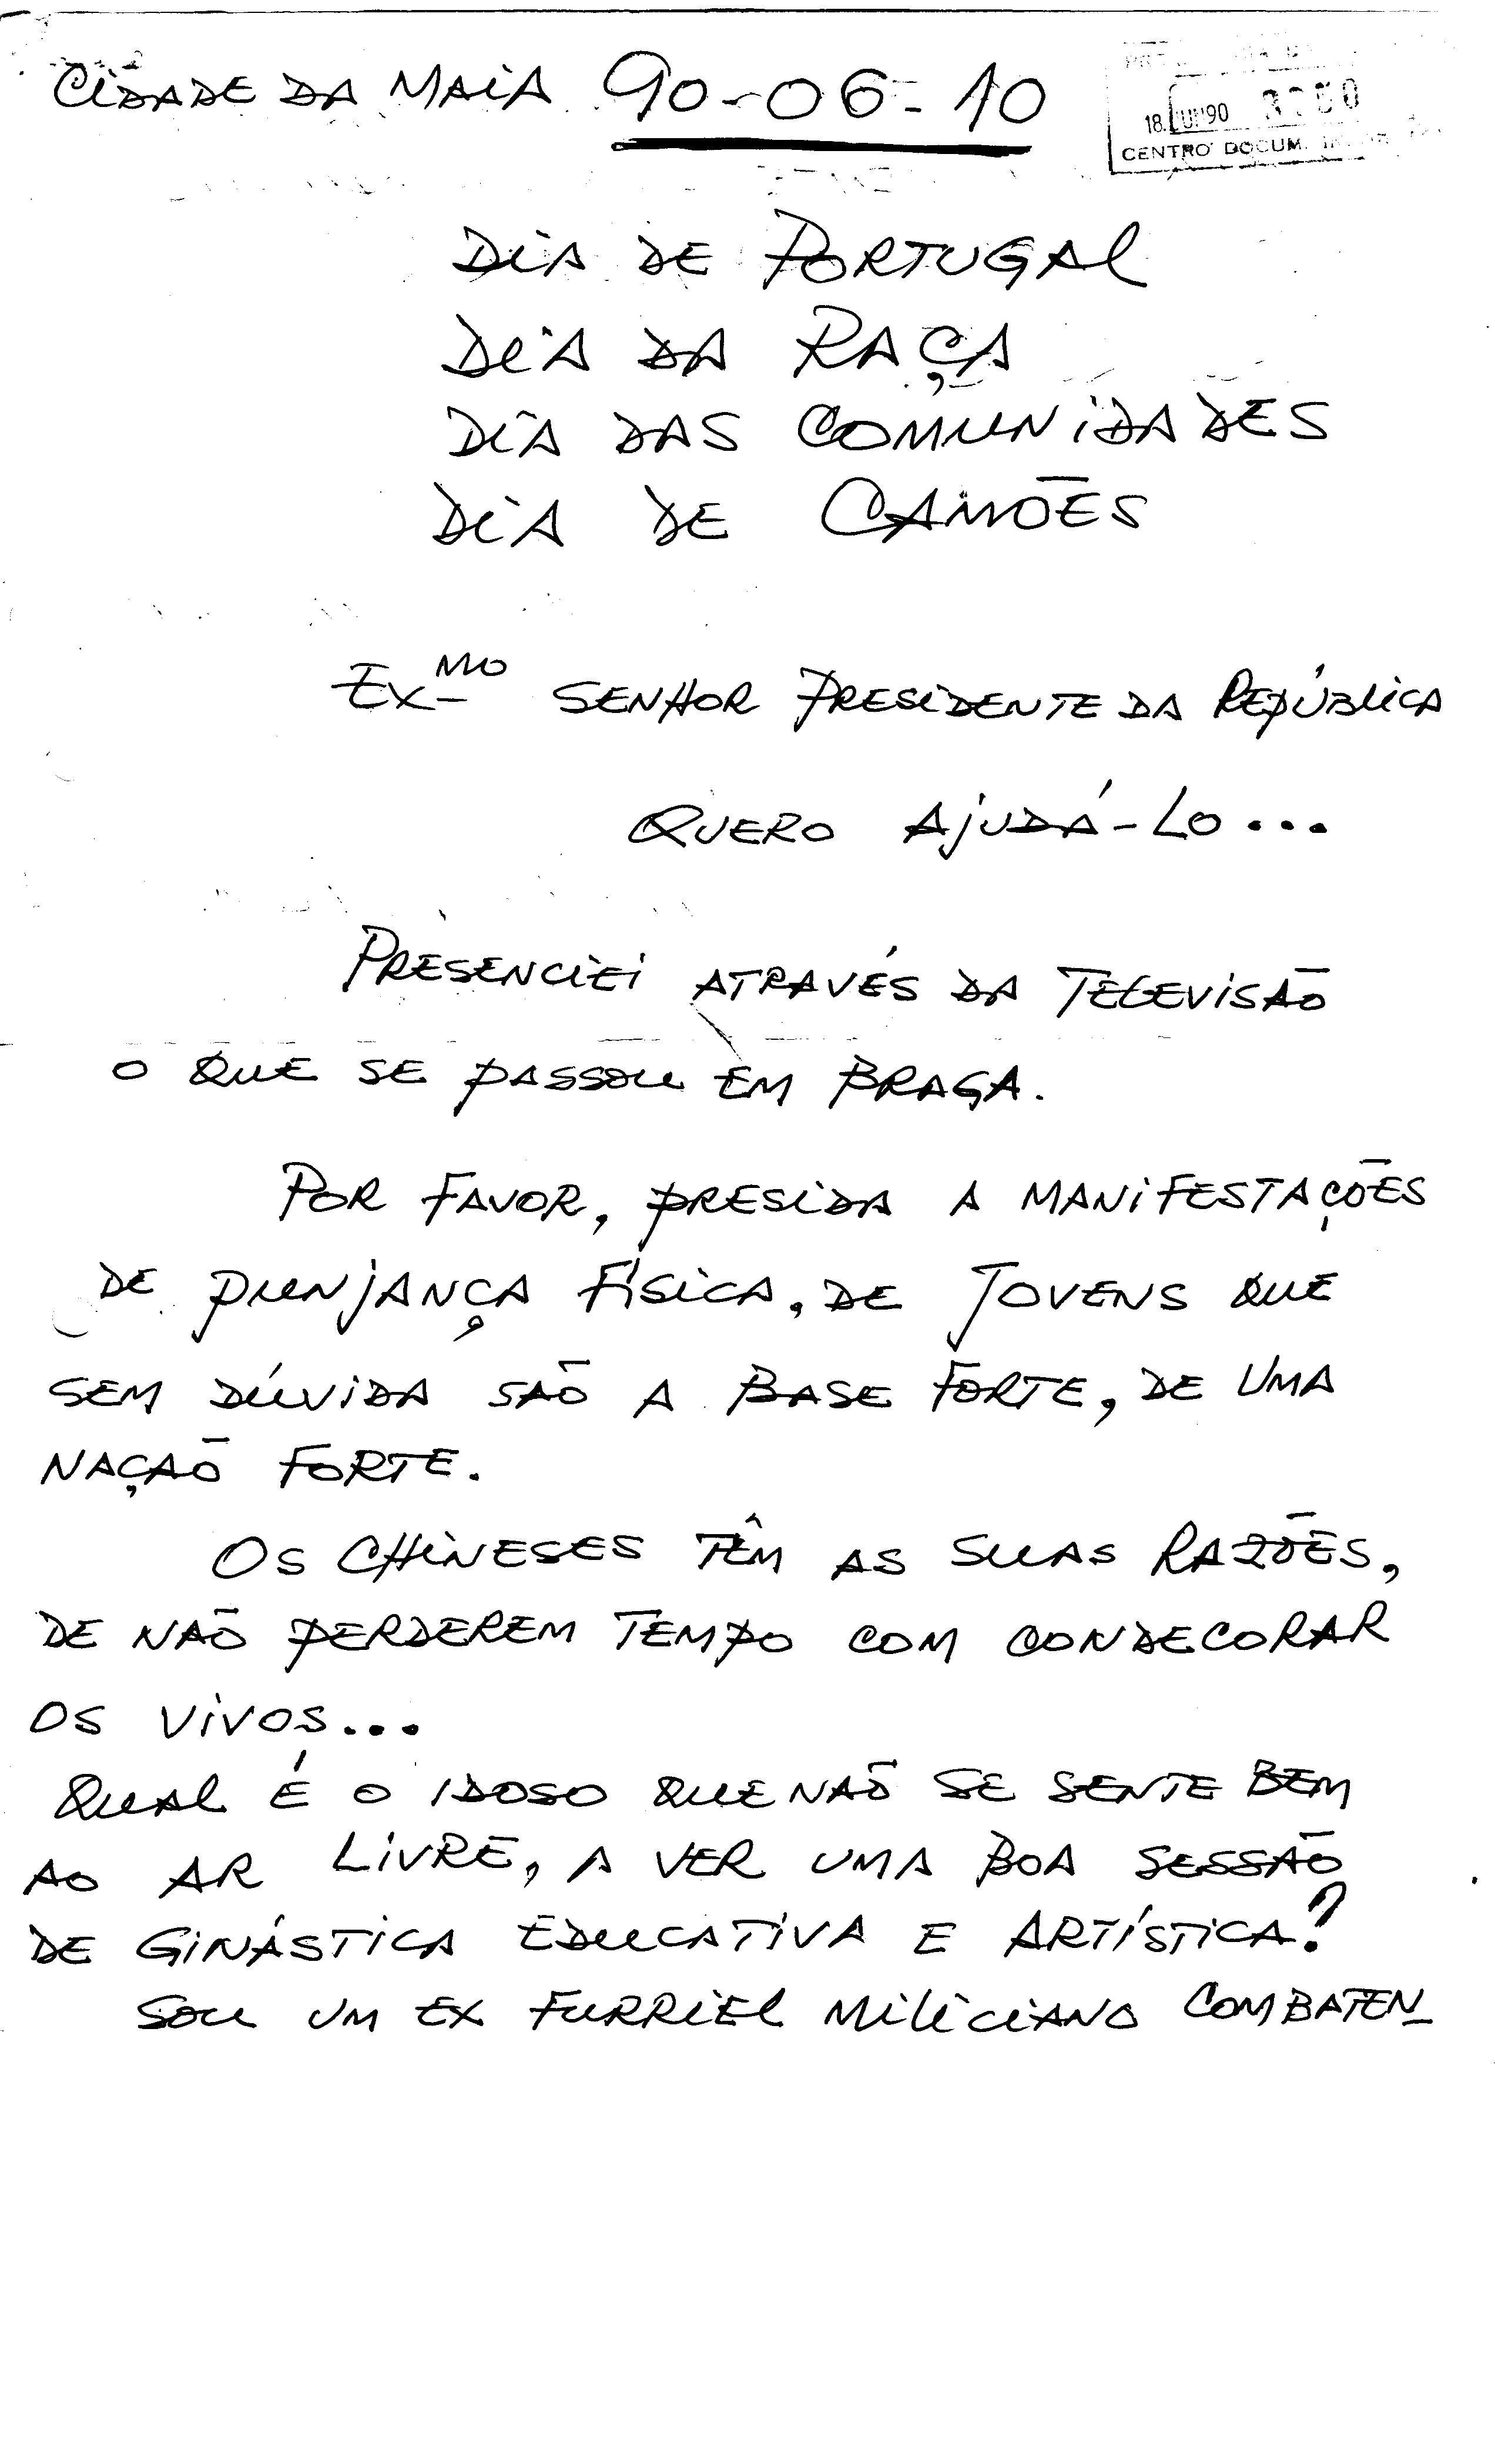 CIDADE DA MAIA 90-06-10
18.JUN90
CENTRO DOCUM.
DIA DE PORTUGAL
DIA DA RAÇA
DIA DAS COMUNIDADES
DIA DE CAMÕES
EXMO SENHOR PRESIDENTE DA REPÚBLICA
QUERO AJUDÁ-LO...
PRESENCIEI ATRAVÉS DA TELEVISÃO
O QUE SE PASSOU EM BRAGA.
POR FAVOR, PRESIDA A MANIFESTAÇÕES
DE PUNJANÇA FÍSICA, DE JOVENS QUE
SEM DÚVIDA SÃO A BASE FORTE, DE UMA
NAÇÃO FORTE.
OS CHINESES TÊM AS SUAS RAZÕES,
DE NÃO PERDEREM TEMPO COM CONDECORAR
OS VIVOS...
QUAL É O IDOSO QUE NÃO SE SENTE BEM
AO AR LIVRE, A VER UMA BOA SESSÃO
DE GINÁSTICA EDUCATIVA E ARTÍSTICA?
SOU UM EX FURRIEL MILICIANO COMBATEN-